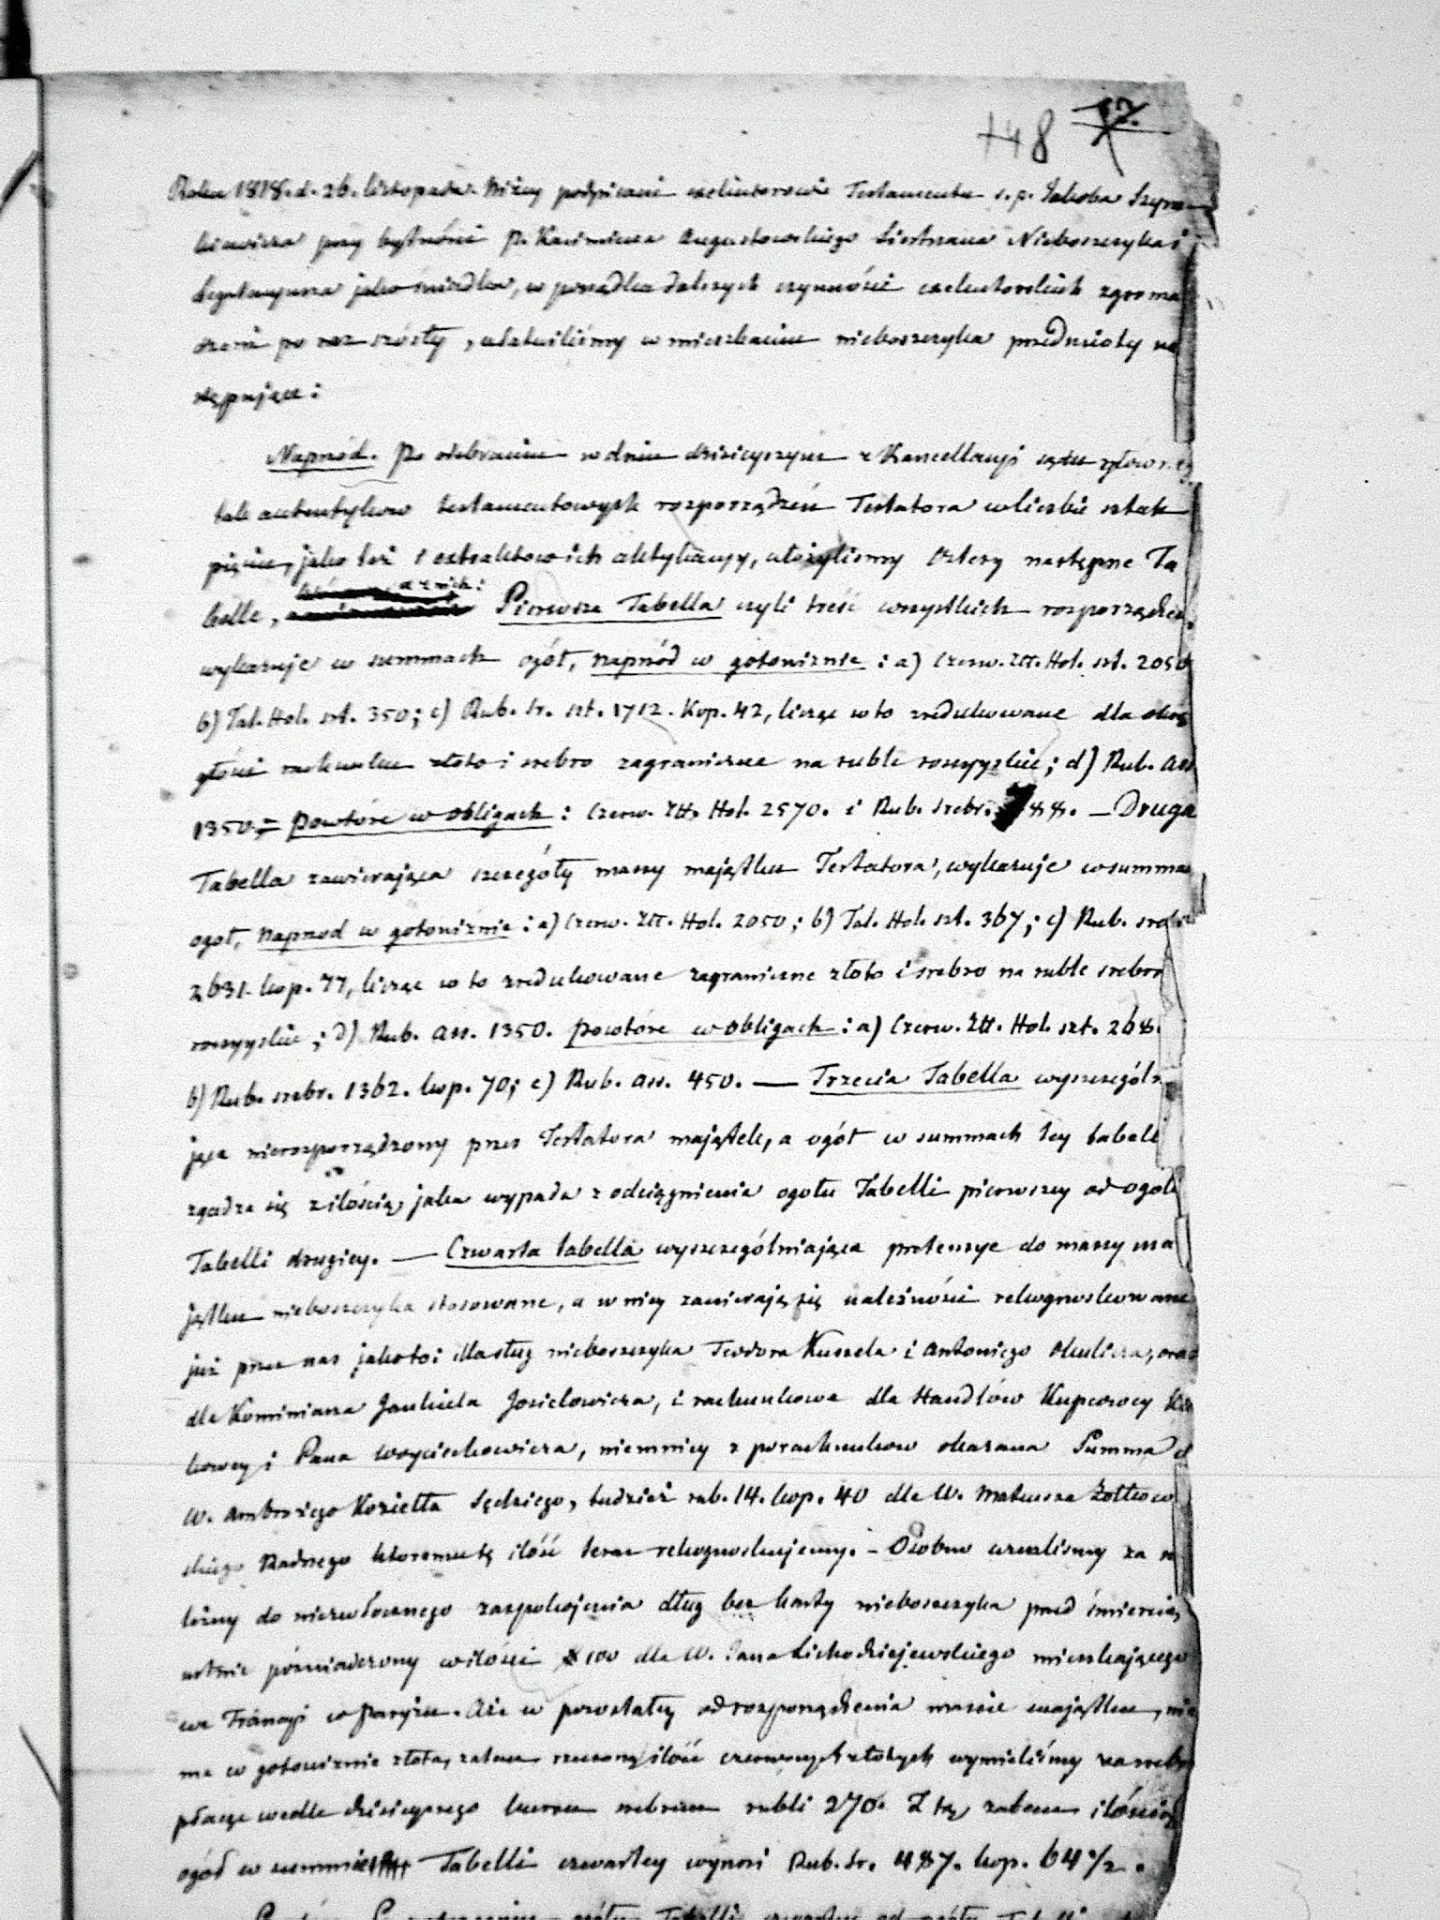 148
Roku 1818. d. 26. listopada. Niżey podpisani exekutorowie Testamentu ś. p. Jakoba Szym
kiewicza przy bytności P. Kazimierza Augustowskiego Siestrzana Nieboszczyka i
Legataryusza jako świadka, w porządku dalszych czynności exekutorskich zgroma
dzeni po raz szósty, ułatwiliśmy w mieszkaniu nieboszczyka przedmioty na
stępujące:
Naprzód. Po odebraniu w dniu dzisieyszym z Kancellaryi sądu głów
tak autentykow testamentowych rozporządzeń Testatora w liczbie sztuk
pięciu, jako też i extraktow ich aktykacyy, ułożyliśmy cztery następne Ta
belle, a z nich: Pierwsza Tabella czyli treść wszystkich rozporządzeń
wykazuje w summach ogół, naprzód w gotowiznie: a) Czerw. Złł. Hol. szt. 2050
b) Tal. Hol. szt. 350; c) Rub. sr. szt. 1712. Kop. 42, licząc w to zredukowane dla okrą
głości rachunku złoto i srebro zagraniczne na ruble rossyyskie; d) Rub. ass.
1350. = powtóre w obligach: Czerw. Złł. Hol. 2570. i Rub. srebr. 788. — Druga
Tabella zawierająca szczegóły massy majątku Testatora, wykazuje w summach
ogoł, naprzod w gotowiznie: a) Czerw. Złł. Hol. 2050; b) Tal. Hol. szt. 367; c) Rub. srebr.
2631. kop. 77, licząc w to zredukowane zagraniczne złoto i srebro na ruble srebro
rossyyskie; d) Rub. ass. 1350. powtóre w obligach: a) Czerw. Złł. Hol. szt. 268.
b) Rub. srebr. 1362. kop. 70; c) Rub. ass. 450. — Trzecia Tabella wyszczególn
jąca nierozporządzony przez Testatora majątek, a ogół w summach tey tabelli
zgadza się z ilością, jaka wypada z odciągnienia ogołu Tabelli pierwszey od ogołu
Tabelli drugiey. — Czwarta tabella wyszczególniająca pretensye do massy ma
jątku nieboszczyka stosowane, a w niey zawierają się należności rekognoskowane
już przez nas jakoto: dla sług nieboszczyka Teodora Kuszela i Antoniego Okulicza, oraz
dla Kominiarza Jankiela Josielowicza, i rachunkowe dla Handlów Kupcowey
kowey i Pana Woyciechowicza, niemniey z porachunkow okazana Summa d
W. Ambrożego Koziełła Sędziego, tudzież rub. 14. kop. 40 dla W. Mateusza Zołkow
skiego Radnego ktoremu tę ilość teraz rekognoskujemy. – Osobno uznaliśmy za na
leżny do niezwłocznego zaspokojenia dług bez karty nieboszczyka przed śmiercią
ustnie poświadczony w ilości 100 dla W. Jana Lichodziejewskiego mieszkającego
we Francyi w Paryżu. Aże w pozostałey od rozporządzenia massie majątku, nie
ma w gotowiznie złota, zatem rzeczoną ilość czerwonych złotych wymieliśmy na srebro
płacąc wedle dzisieyszego kursu srebrem rubli 270. Z tą zatem ilością
ogół w summie Tabelli czwartey wynosi Rub. sr. 487. kop. 64 1/2.